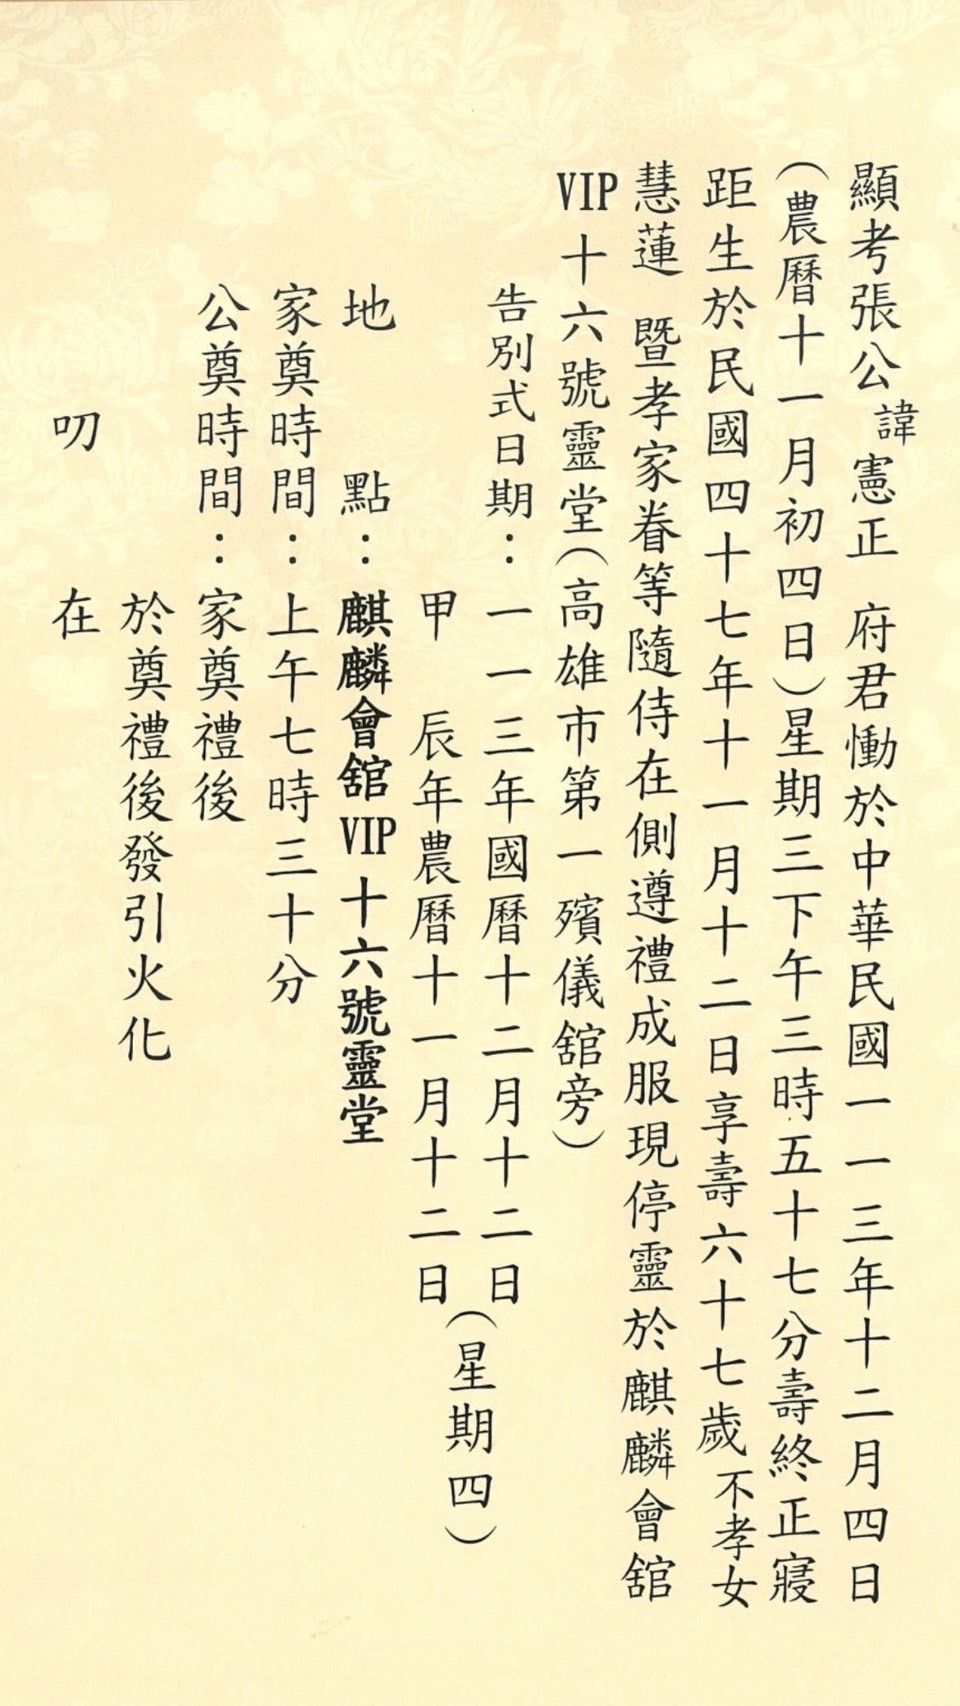 顯考張公諱憲正　府君慟於中華民國一一三年十二月四日
（農曆十一月初四日）星期三下午三時五十七分壽終正寢
距生於民國四十七年十一月十二日享壽六十七歲不孝女
慧蓮　暨孝家眷等隨侍在側遵禮成服現停靈於麒麟會舘
VIP十六號靈堂（高雄市第一殯儀舘旁）
告別式日期：一一三年國曆十二月十二日
甲　辰年農曆十一月十二日（星期四）
地　　點：麒麟會舘VIP十六號靈堂
家奠時間：上午七時三十分
公奠時間：家奠禮後
於奠禮後發引火化
叨　　在